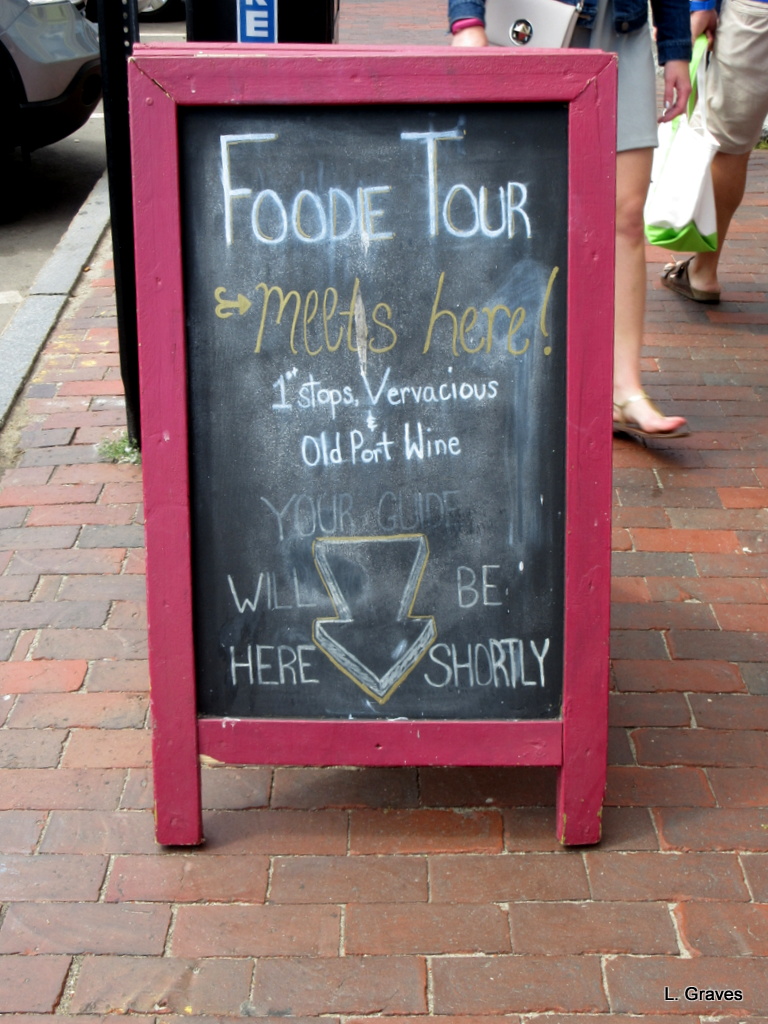 RE
FOODIE TOUR
meets here!
1st stops, Vervacious
&
Old Port Wine
YOUR GUIDE
WILL BE
HERE SHORTLY
L. Graves